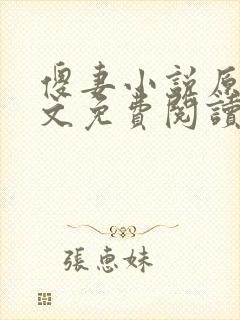 傻妻小说原
文免費閱讀
張惠妹